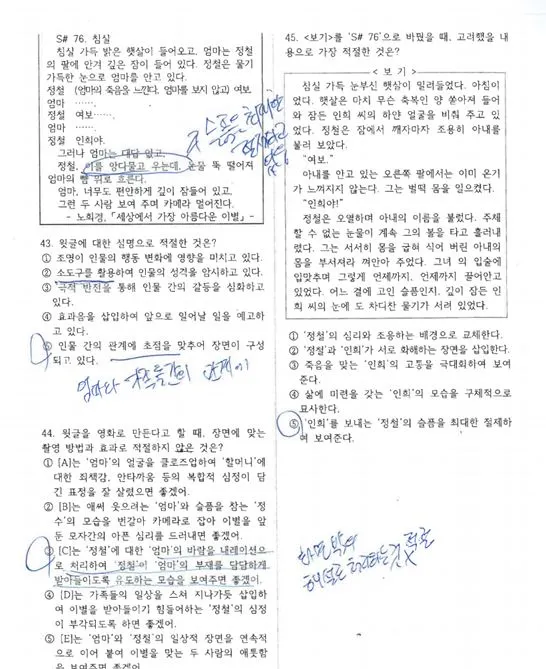 S# 76. 침실
침실 가득 밝은 햇살이 들어오고, 엄마는 정철
의 팔에 안겨 깊은 잠이 들어 있다. 정철은 물기
가득한 눈으로 엄마를 안고 있다.
정철 (엄마의 죽음을 느낀다. 엄마를 보지 않고) 여보.
엄마 …….
정철 여보…….
엄마 …….
정철 인희야.
그러나 엄마는 대답 없고,
정철, 이를 앙다물고 우는데, 눈물 뚝 떨어져
엄마의 뺨 위로 흐른다.
엄마, 너무도 편안하게 깊이 잠들어 있고,
그런 두 사람 보여 주며 카메라 멀어진다.
- 노희경, 「세상에서 가장 아름다운 이별」 -
슬픔을
43. 윗글에 대한 설명으로 적절한 것은?
① 조명이 인물의 행동 변화에 영향을 미치고 있다.
② 소도구를 활용하여 인물의 성격을 암시하고 있다.
③ 극적 반전을 통해 인물 간의 갈등을 심화하고
있다.
④ 효과음을 삽입하여 앞으로 일어날 일을 예고하
고 있다.
⑤ 인물 간의 관계에 초점을 맞추어 장면이 구성
되고 있다.
엄마와 가족들간의 관계
44. 윗글을 영화로 만든다고 할 때, 장면에 맞는
촬영 방법과 효과로 적절하지 않은 것은?
① [A]는 '엄마'의 얼굴을 클로즈업하여 '할머니'에
대한 죄책감, 안타까움 등의 복합적 심정이 담
긴 표정을 잘 살렸으면 좋겠어.
② [B]는 애써 웃으려는 '엄마'와 슬픔을 참는 '정
수'의 모습을 번갈아 카메라로 잡아 이별을 앞
둔 모자간의 아픈 심리를 드러내면 좋겠어.
③ [C]는 '정철'에 대한 '엄마'의 바람을 내레이션으
로 처리하여 '정철'이 '엄마'의 부재를 담담하게
받아들이도록 유도하는 모습을 보여주면 좋겠어.
④ [D]는 가족들의 일상을 스쳐 지나가듯 삽입하
여 이별을 받아들이기 힘들어하는 '정철'의 심정
이 부각되도록 하면 좋겠어.
⑤ [E]는 '엄마'와 '정철'의 일상적 장면을 연속적
으로 이어 붙여 이별을 맞는 두 사람의 애틋함
을 보여주면 좋겠어.
45. <보기>를 'S# 76'으로 바꿨을 때, 고려했을 내
용으로 가장 적절한 것은?
< 보 기 >
침실 가득 눈부신 햇살이 밀려들었다. 아침이
었다. 햇살은 마치 무슨 축복인 양 쏟아져 들어
와 잠든 인희 씨의 하얀 얼굴을 비춰 주고 있
었다. 정철은 잠에서 깨자마자 조용히 아내를
불러 보았다.
"여보."
아내를 안고 있는 오른쪽 팔에서는 이미 온기
가 느껴지지 않는다. 그는 벌떡 몸을 일으켰다.
"인희야!"
정철은 오열하며 아내의 이름을 불렀다. 주체
할 수 없는 눈물이 계속 그의 볼을 타고 흘러내
렸다. 그는 서서히 몸을 굽혀 식어 버린 아내의
몸을 부서져라 껴안아 주었다. 그녀 의 입술에
입맞추며 그렇게 언제까지, 언제까지 끌어안고
있었다. 어느 결에 고인 슬픔인지, 깊이 잠든 인
희 씨의 눈에 도 차디찬 물기가 서려 있었다.
① '정철'의 심리와 조응하는 배경으로 교체한다.
② '정철'과 '인희'가 서로 화해하는 장면을 삽입한다.
③ 죽음을 맞는 '인희'의 고통을 극대화하여 보여
준다.
④ 삶에 미련을 갖는 '인희'의 모습을 구체적으로
묘사한다.
⑤ '인희'를 보내는 '정철'의 슬픔을 최대한 절제하
여 보여준다.